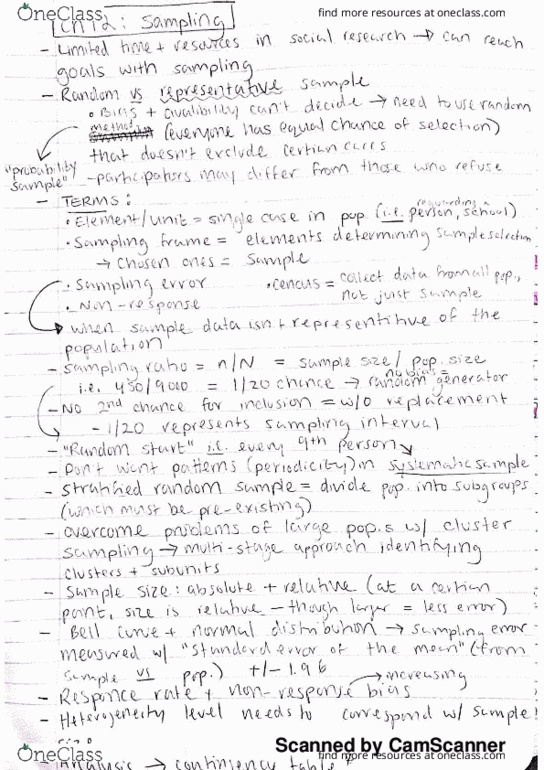 OneClass
find more resources at oneclass.com
Ch 12: Sampling
- Limited time + resources in social research → can reach
goals with sampling
- Random vs representative sample
• Bias + avalibility can't decide → need to use random
method (everyone has equal chance of selection)
that doesn't exclude certian cases
"probability sample"
- participators may differ from those who refuse
- TERMS:
• Element/unit = single case in pop (i.e. person, school)
• Sampling frame = elements regarding determining sample selection
→ chosen ones = sample
• Sampling error
• cencus = collect data from all pop., not just sample
• Non-response
→ when sample data isn't representitive of the
population
- Sampling ratio = n/N = sample size / pop. size
i.e. 450/9000 = 1/20 chance → random generator
no bias =
- No 2nd chance for inclusion = w/o replacement
- 1/20 represents sampling interval
- "Random start" i.e. every 9th person
- Don't want patterns (periodicity) in systematic sample
- stratified random sample = divide pop. into subgroups
(which must be pre-existing)
- overcome problems of large pop.s w/ cluster
sampling → multi-stage approach identifying
clusters + subunits
- Sample size: absolute + relative (at a certian
point, size is relative - though larger = less error)
- Bell curve + normal distribution → sampling error
measured w/ "standard error of the mean" (from
sample vs pop.) +/- 1.96
- Responce rate + non-response bias → increasing
- Heterogeneity level needs to correspond w/ sample!
Scanned by CamScanner
OneClass
find more resources at oneclass.com
Analysis → continiency table